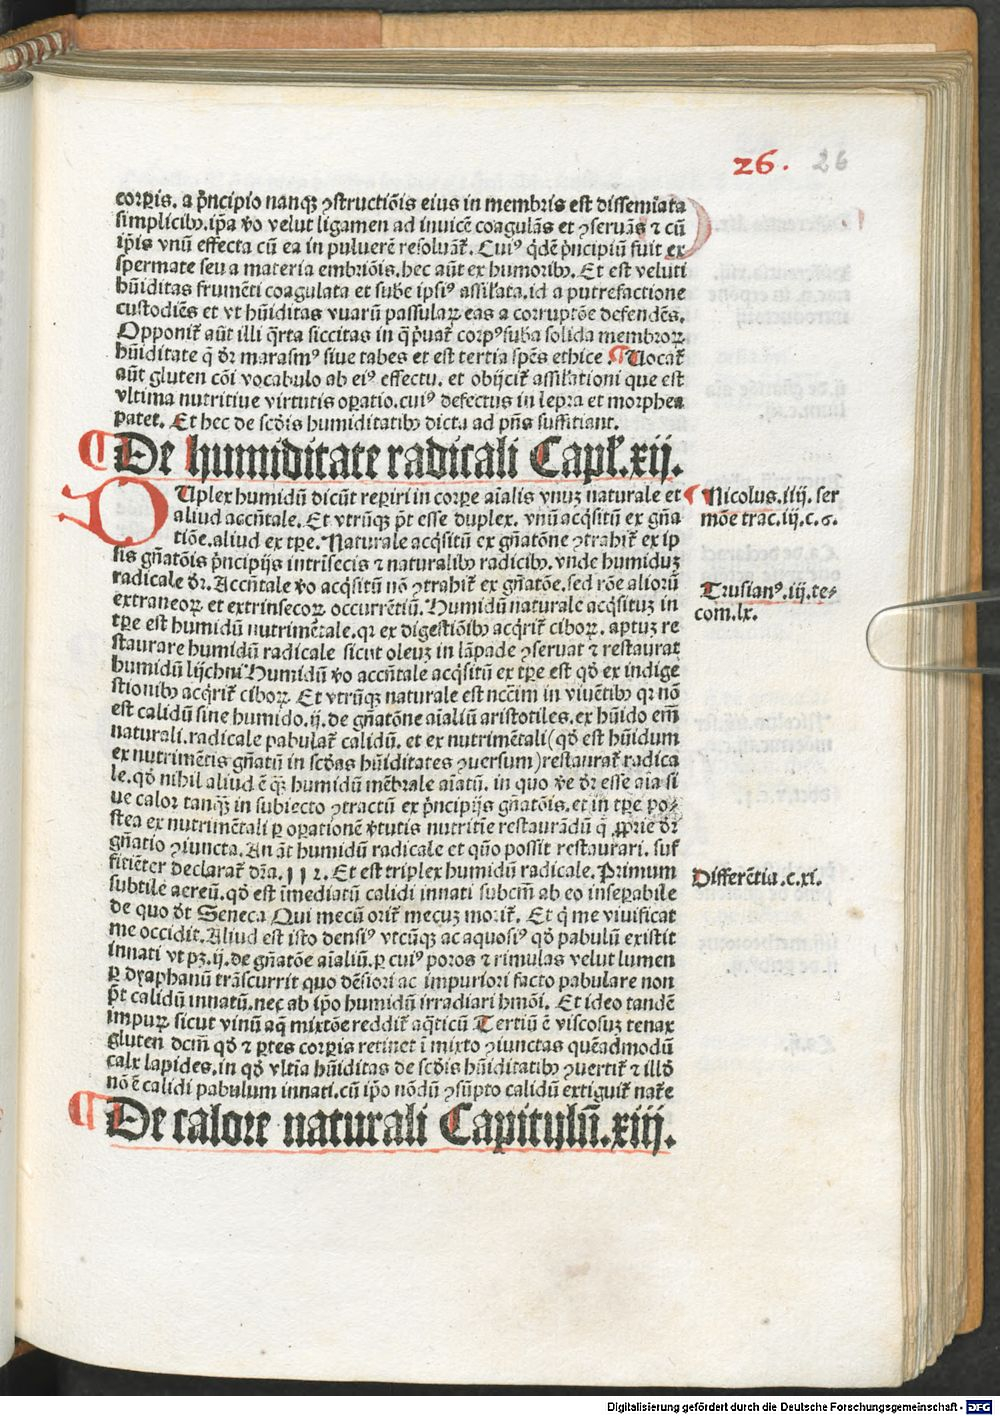 26. 26
corꝑis. a pͥncipio nanqꝫ ꝯstructiõis eius in membris est dissemiata
simplicibꝰ. ip̃a ꝟo velut ligamen ad inuicẽ coagulãs et ꝯseruãs ⁊ cũ
ip̃is vnũ effecta cũ ea in puluerẽ resoluãt᷑. Cuiꝰ qͥdẽ pͥncipiũ fuit ex
spermate seu a materia embriõis. hec aũt ex humoribꝰ. Et est veluti
hũiditas frumẽti coagulata et sube ipsiꝰ assilata. id a putrefactione
custodiẽs et vt hũiditas vuarũ passulaꝝ eas a corruptõe defendẽs.
Opponit᷑ aũt illi qͣrta siccitas in qͣ pͥuat᷑ corpꝰ suba solida membroꝝ
hũiditate q̃ dr̃ marasmꝰ siue tabes et est tertia spẽs ethice. ¶ Uocat᷑
aũt gluten cõi vocabulo ab eiꝰ effectu. et obijcit᷑ assilationi que est
vltima nutritiue virtutis oꝑatio. cuiꝰ defectus in lepra et morphea
patet. Et hec de scd̃is humiditatibꝰ dicta ad pñs suffitiant.
¶ De humiditate radicali Capl̃. xij.
DUplex humidũ dicũt reꝑiri in corꝑe aĩalis vnuꝫ naturale et
aliud accñtale. Et vtrũqꝫ põt esse duplex. vnũ acqͥsitũ ex gñatiõe.
aliud ex tꝑe. Naturale acqͥsitũ ex gñatõne ꝯtrahit᷑ ex ip
sis gñatõis pͥncipijs intrĩsecis ⁊ naturalibꝰ radicibꝰ. vnde humiduꝫ
radicale dr̃. Accñtale ꝟo acqͥsitũ nõ ꝯtrahit᷑ ex gñatõe. sed rõe aliorũ
extraneoꝝ et extrinsecoꝝ occurrẽtiũ. Humidũ naturale acqͥsituꝫ in
tꝑe est humidũ nutrimẽtale. qꝛ ex digestiõibꝰ acqͥrit᷑ ciboꝝ. aptuꝫ re
staurare humidũ radicale sicut oleuꝫ in lãpade ꝯseruat ⁊ restaurat
humidũ lijchni Humidũ ꝟo accñtale acqͥsitũ ex tꝑe est qď ex indige
stionibꝰ acqͥrit᷑ ciboꝝ. Et vtrũqꝫ naturale est nccĩm in viuẽtibꝰ qꝛ nõ
est calidũ sine humido. ij. de gñatõne aĩaliũ aristotiles. ex hũido em̃
naturali. radicale pabulat᷑ calidũ. et ex nutrimẽtali (qď est hũidum
ex nutrimẽtis gñatũ in scd̃as hũiditates ꝯuersum) restaurat᷑ radica
le. qď nihil aliud ẽ qͣꝫ humidũ mẽbrale aĩatũ. in quo ve dr̃ esse aĩa si
ue calor tanqͣꝫ in subiecto ꝯtractũ ex pͥncipijs gñatõis. et in tꝑe po⸗
stea ex nutrimẽtali ꝑ oꝑationẽ ꝟtutis nutritĩe restaurãdũ q̃ ꝓprie dr̃
gñatio ꝯiuncta. An aũt humidũ radicale et quõ possit restaurari. suf
fitiẽter declarat dr̃a. 112. Et est triplex humidũ radicale. Primum
subtile aereũ. qď est ĩmediatũ calidi innati subcm̃ ab eo inseꝑabile
de quo dr̃t Seneca Qui mecũ orit᷑ mecuꝫ morit᷑. Et q̃ me viuificat
me occidit. Aliud est isto densiꝰ vtcũqꝫ ac aquosiꝰ qď pabulũ existit
innati vt pꝫ. ij. de gñatõe aĩaliũ. ꝑ cuiꝰ poros ⁊ rimulas velut lumen
ꝑ dyaphanũ trãscurrit quo dẽsiori ac impuriori facto pabulare non
põt calidũ innatũ. nec ab ip̃o humidũ irradiari hmõi. Et ideo tandẽ
impuꝝ sicut vinũ aqͣ mixtõe reddit᷑ aqͣticũ Tertiũ ẽ viscosuꝫ tenax
gluten dcm̃ qď ⁊ ꝑtes corꝑis retinet ĩ mixto ꝯiunctas quẽadmodũ
calx lapides. in qď vltĩa hũiditas de scd̃is hũiditatibꝰ ꝯuertit᷑ ⁊ illď
nõ ẽ calidi pabulum innati. cũ ip̃o nõdũ ꝯsũpto calidũ extiguit᷑ nat᷑e
¶ De calore naturali Capitulũ. xiij.
¶ Nicolus. iiij. ser
mõe trac. iij. c. 6.
Trusianꝰ. iij. te⸗
com. lx.
Differẽtia. c. xi.
Digitalisierung gefördert durch die Deutsche Forschungsgemeinschaft - DFG